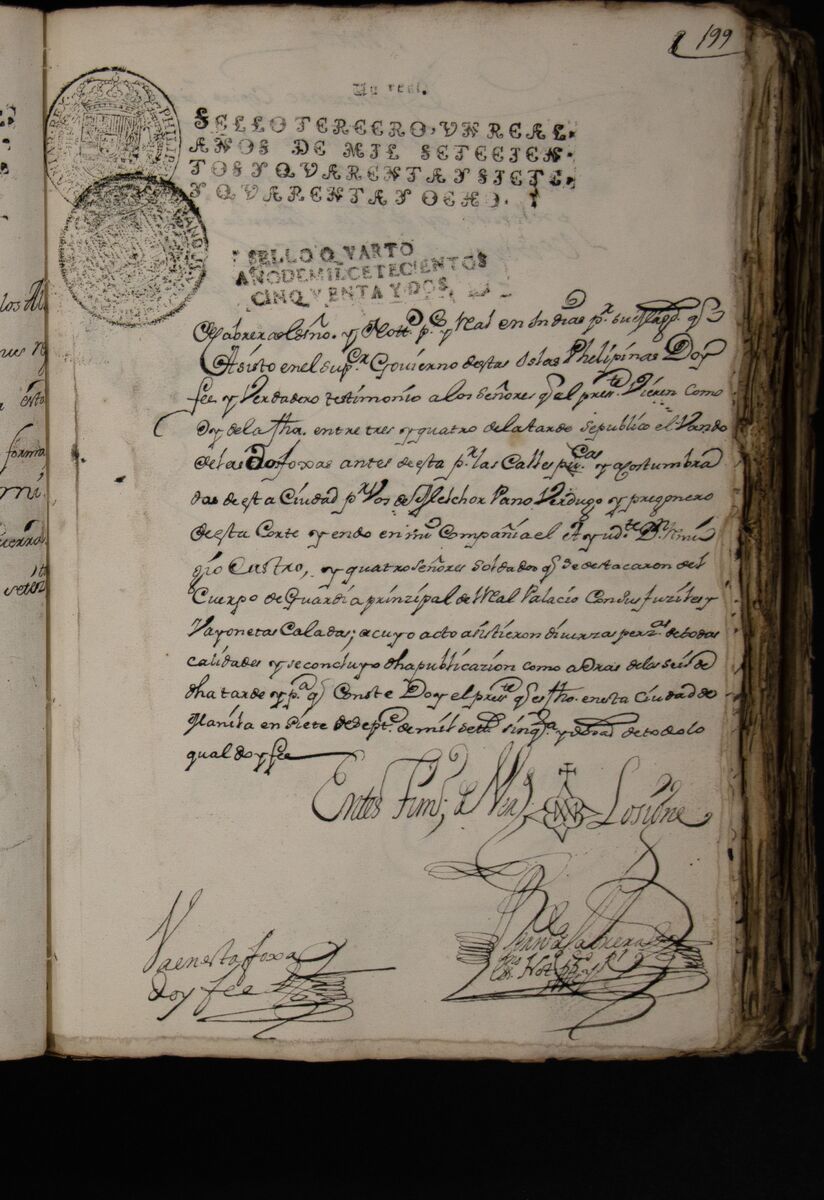 199
Un real.
SELLO TERCERO, UN REAL,
AÑOS DE MIL SETECIEN-
TOS Y QVARENTA Y SIETE,
Y QVARENTA Y OCHO.
SELLO QVARTO
AÑO DE MIL CETECIENTOS
CINQVENTA Y DOS
Cabrera essño. y Nott.o pco y Real en Indias pr. su Magd. qe
Asisto en el supr. Govierno de estas Islas Phelipinas Doy
fee y Verdadero testimonio a los señores qe el preste Vieren como
oy dela fha. entre tres y quatro dela tarde se publico el Vando
delas dos foxas antes de esta pr. las Calles pucas y acostumbra
das de esta Ciudad pr. Vos de Melchor Pano Verdugo y pregonero
de esta Corte yendo en mi Compañia el Ayudte Dn Remi
gio Castro, y quatro señores soldados qe se destacaron del
Cuerpo de Guardia prinzipal de Real Palacio Con sus fuziles y
Vayonetas Caladas; a cuyo acto asistieron diverzas perzas de todas
calidades y se concluyo dha publicazion como a Oras delas seis de
dha tarde y pa qe Conste Doy el preste qe es fho. en esta Ciudad de
Manila en siete de Septe. de mil sets. sinqta y dos de todo lo
qual doy fee
Va en esta foxa
doy fee